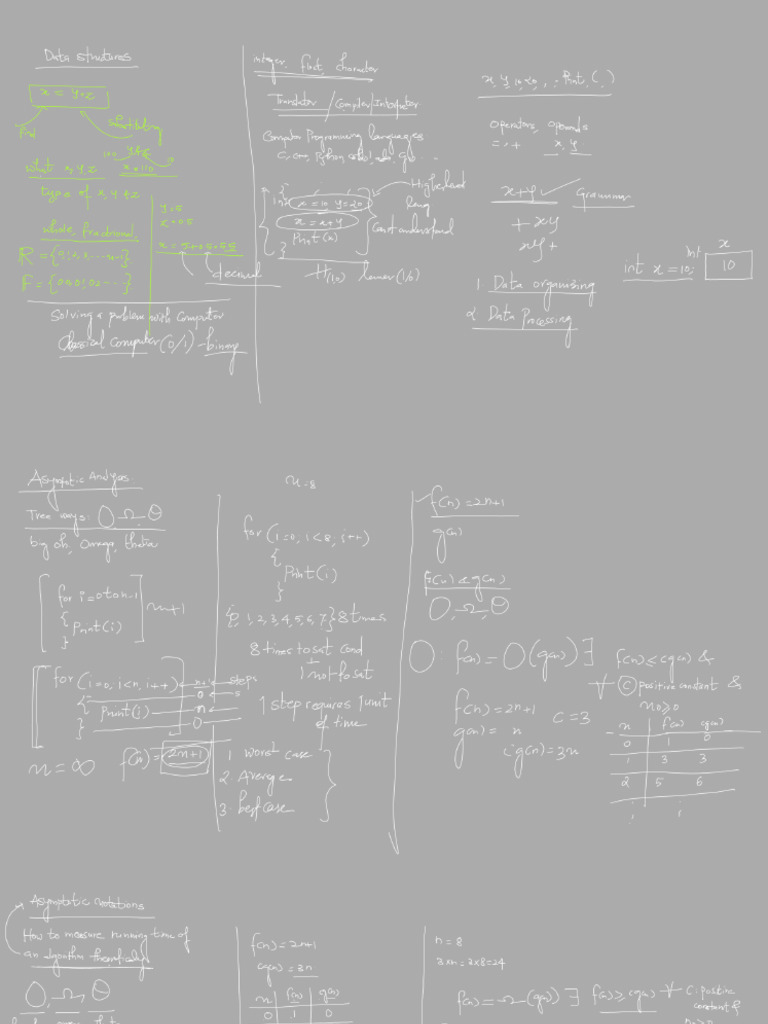 Data structures
x = y+z
what x,y,z
types of x, y & z
whole, fractional
y=5
decimal
Solving a problem with computer
Classical Computer (0/1) - binary
integer, float, character
Translator / Compiler/Interpreter
Computer Programming languages
x = 10, y = 20
x = x+y
Print(x)
}
Higher level
lang
Cant understand
lower (1/0)
operators, operands
=, + x, y
x+y Grammar
+ xy
xy +
int x = 10;
int
x
10
1 Data organising
2 Data Processing
Asymptotic Analyses
Tree ways: O, Ω, Θ
big oh, Omega, theta
for i=0 to n-1
{
Print(i)
}
n+1
for (i=0, i<n, i++) n+1 steps
{ 0
Print(i) n
} 0
n = ∞ f(n) = 2n+1
n=8
for (i=0, i<8, i++)
{
Print(i)
}
{0, 1, 2, 3, 4, 5, 6, 7} 8 times
8 times to sat cond
+
1 not to sat
1 step requires 1 unit
of time
1 worst case
2 Average
3. best case
f(n) = 2n+1
g(n)
f(n) < g(n)
O, Ω, Θ
O: f(n) = O(g(n)) ∃ f(n) ≤ cg(n) &
∀ C positive constant &
n0 ≥ 0
f(n) = 2n+1 c = 3
g(n) = n
cg(n) = 3n
n f(n) cg(n)
0 1 0
1 3 3
2 5 6
Asymptotic notations
How to measure running time of
an algorithm theoretically
O, Ω, Θ
f(n) = 2n+1
cg(n) = 3n
n f(n) g(n)
0 1 0
n = 8
3×n = 3×8 = 24
f(n) = Ω(g(n)) ∃ f(n) ≥ cg(n) ∀ C: positive
constant &